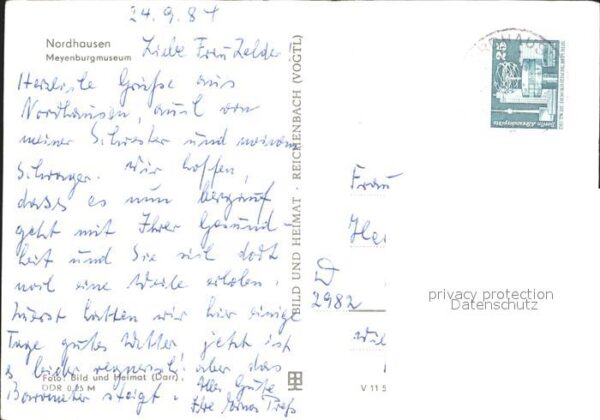 24.9.81
Nordhausen
Meyenburgmuseum
Liebe Frau Zelder!
Herzliche Grüße aus
Nordhausen, auch von
meiner Schwester und meinem
Schwager. Wir hoffen,
dass es nun bergauf
geht mit Ihrer Gesund-
heit und Sie sich dort
noch eine Weile erholen.
Zuerst hatten wir hier einige
Tage gutes Wetter jetzt ist
es leider regnerisch aber das
Barometer steigt.
Alles Gute
Ihre
Foto: Bild und Heimat (Darr)
DDR 0,25 M
BILD UND HEIMAT · REICHENBACH (VOGTL)
V 11 5
25
Berlin, Alexanderplatz
Frau
D
2982
privacy protection
Datenschutz